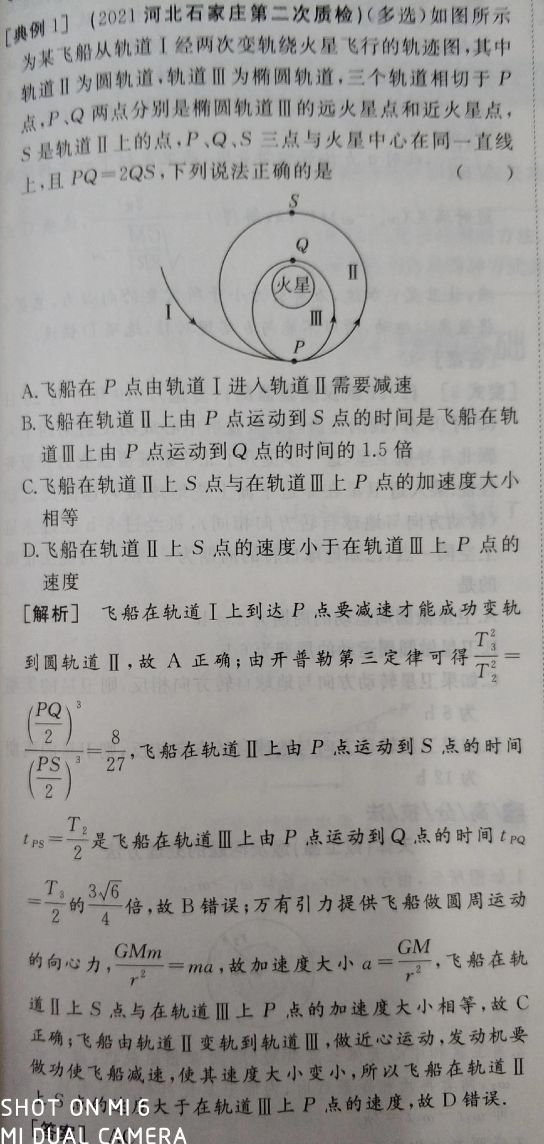 [典例1] (2021河北石家庄第二次质检)(多选)如图所示
为某飞船从轨道Ⅰ经两次变轨绕火星飞行的轨迹图,其中
轨道Ⅱ为圆轨道,轨道Ⅲ为椭圆轨道,三个轨道相切于P
点,P、Q两点分别是椭圆轨道Ⅲ的远火星点和近火星点,
S是轨道Ⅱ上的点,P、Q、S三点与火星中心在同一直线
上,且PQ=2QS,下列说法正确的是 ( )
S
Q
火星
Ⅱ
Ⅰ
Ⅲ
P
A.飞船在P点由轨道Ⅰ进入轨道Ⅱ需要减速
B.飞船在轨道Ⅱ上由P点运动到S点的时间是飞船在轨
道Ⅲ上由P点运动到Q点的时间的1.5倍
C.飞船在轨道Ⅱ上S点与在轨道Ⅲ上P点的加速度大小
相等
D.飞船在轨道Ⅱ上S点的速度小于在轨道Ⅲ上P点的
速度
[解析] 飞船在轨道Ⅰ上到达P点要减速才能成功变轨
到圆轨道Ⅱ,故A正确;由开普勒第三定律可得$\frac{T_3^2}{T_2^2}$=
$\frac{(\frac{PQ}{2})^3}{(\frac{PS}{2})^3}=\frac{8}{27}$,飞船在轨道Ⅱ上由P点运动到S点的时间
$t_{PS}=\frac{T_2}{2}$是飞船在轨道Ⅲ上由P点运动到Q点的时间$t_{PQ}$
$=\frac{T_3}{2}$的$\frac{3\sqrt{6}}{4}$倍,故B错误;万有引力提供飞船做圆周运动
的向心力,$\frac{GMm}{r^2}=ma$,故加速度大小$a=\frac{GM}{r^2}$,飞船在轨
道Ⅱ上S点与在轨道Ⅲ上P点的加速度大小相等,故C
正确;飞船由轨道Ⅱ变轨到轨道Ⅲ,做近心运动,发动机要
做功使飞船减速,使其速度大小变小,所以飞船在轨道Ⅱ
上S点的速度大于在轨道Ⅲ上P点的速度,故D错误.
SHOT ON MI 6
MI DUAL CAMERA
[答案]